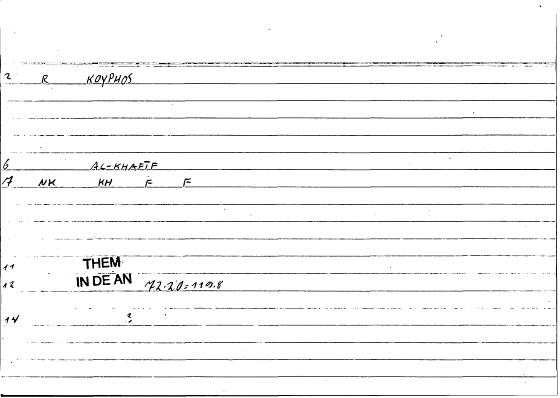 2 R KOYPHOS
6 AL-KHAFIF
17 NK KH F F
11 THEM
12 IN DE AN 72.20=119.8
14 ?